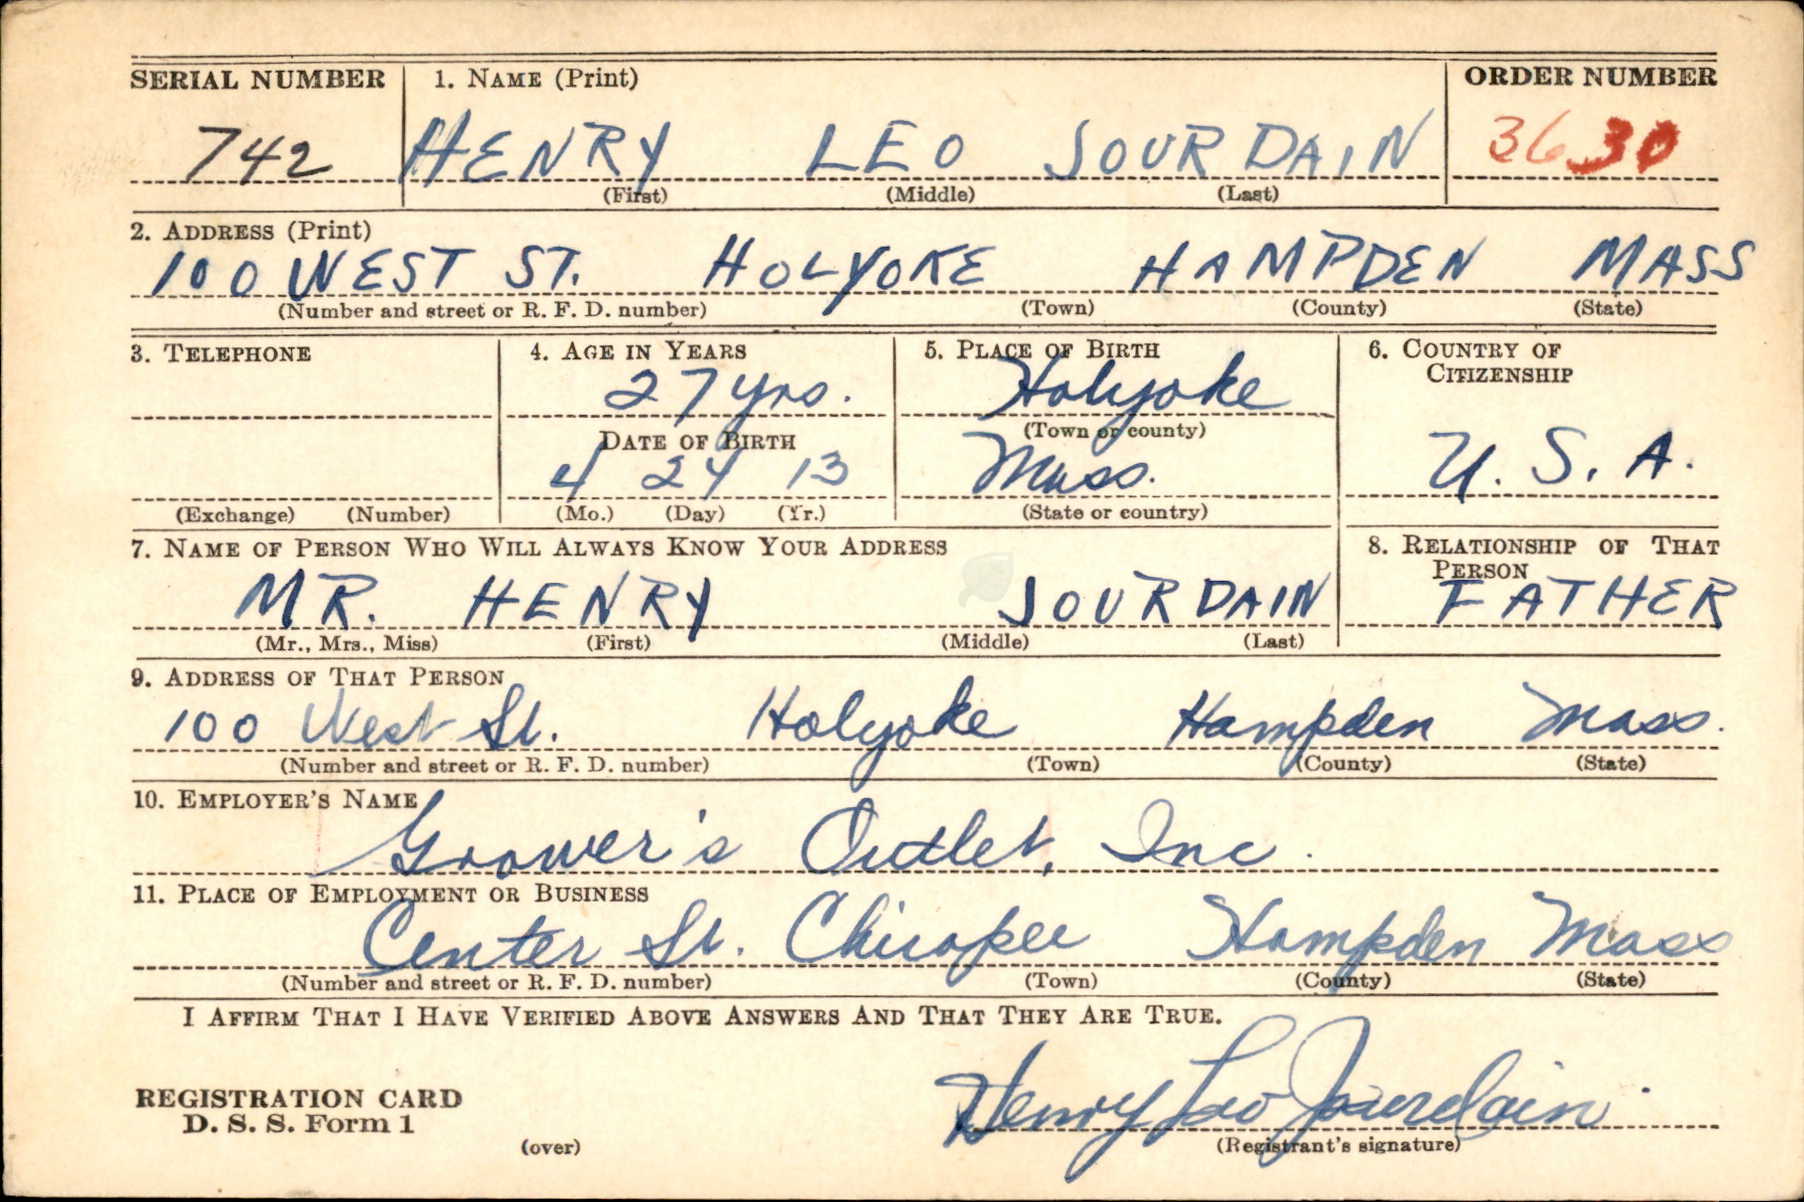 SERIAL NUMBER 1. NAME (Print) ORDER NUMBER
742 HENRY LEO JOURDAIN 3630
(First) (Middle) (Last)
2. ADDRESS (Print)
100 WEST ST. HOLYOKE HAMPDEN MASS
(Number and street or R. F. D. number) (Town) (County) (State)
3. TELEPHONE 4. AGE IN YEARS 5. PLACE OF BIRTH 6. COUNTRY OF
CITIZENSHIP
27 yrs. Holyoke
DATE OF BIRTH (Town or county)
4 24 13 Mass. U. S. A.
(Exchange) (Number) (Mo.) (Day) (Yr.) (State or country)
7. NAME OF PERSON WHO WILL ALWAYS KNOW YOUR ADDRESS 8. RELATIONSHIP OF THAT
PERSON
MR. HENRY JOURDAIN FATHER
(Mr., Mrs., Miss) (First) (Middle) (Last)
9. ADDRESS OF THAT PERSON
100 West St. Holyoke Hampden Mass.
(Number and street or R. F. D. number) (Town) (County) (State)
10. EMPLOYER'S NAME
Grower's Outlet, Inc.
11. PLACE OF EMPLOYMENT OR BUSINESS
Center St. Chicopee Hampden Mass
(Number and street or R. F. D. number) (Town) (County) (State)
I AFFIRM THAT I HAVE VERIFIED ABOVE ANSWERS AND THAT THEY ARE TRUE.
Henry Leo Jourdain
REGISTRATION CARD
D. S. S. Form 1
(over) (Registrant's signature)